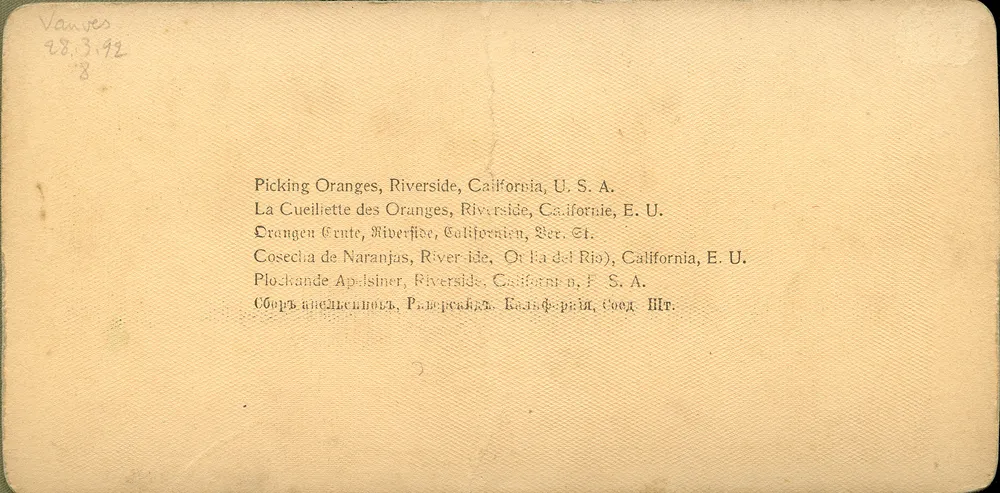 Vanves
28.3.92
8
Picking Oranges, Riverside, California, U. S. A.
La Cueillette des Oranges, Riverside, Californie, E. U.
Orangen Ernte, Riverside, Californien, Ver. St.
Cosecha de Naranjas, Riverside, Orilla del Rio), California, E. U.
Plockande Apelsiner, Riverside, Californien, F. S. A.
Сборъ апельсиновъ, Риверсайдъ, Калифорнія, Соед. Шт.